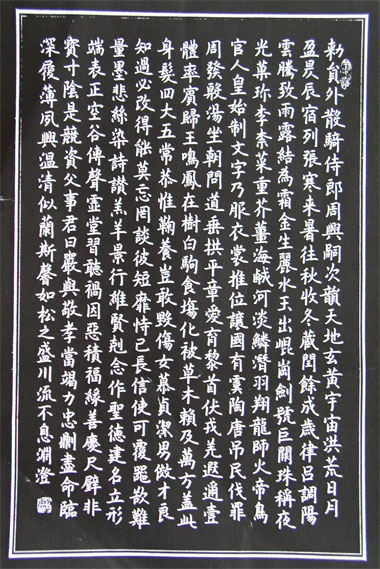 勑員外散騎侍郎周興嗣次韻天地玄黃宇宙洪荒日月
盈昃辰宿列張寒来暑往秋收冬藏閏餘成歲律呂調陽
雲騰致雨露結為霜金生麗水玉出崐崗劍號巨闕珠稱夜
光菓珎李柰菜重芥薑海鹹河淡鱗潛羽翔龍師火帝鳥
官人皇始制文字乃服衣裳推位讓國有虞陶唐吊民伐罪
周發殷湯坐朝問道垂拱平章愛育黎首伏戎羌遐邇壹
體率賓歸王鳴鳳在樹白駒食場化被草木賴及萬方盖此
身髮四大五常恭惟鞠養豈敢毀傷女慕貞潔男倣才良
知過必改得能莫忘罔談彼短靡恃己長信使可覆器欲難
量墨悲絲染詩讚羔羊景行維賢剋念作聖德建名立形
端表正空谷傳聲虛堂習聽禍因惡積福緣善慶尺璧非
寶寸陰是競資父事君曰嚴與敬孝當竭力忠則盡命臨
深履薄夙興溫清似蘭斯馨如松之盛川流不息淵澄